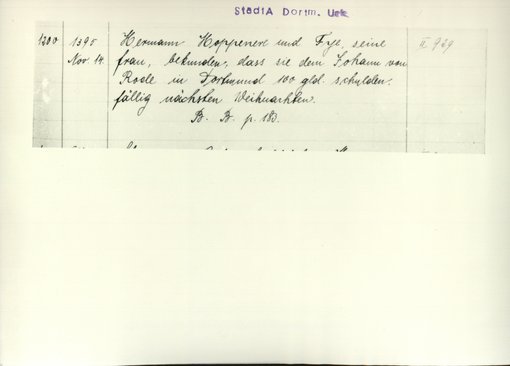 StadtA Dortm. Urk.
1200 1395 Hermann Hoppenere und Fye, seine II 929
Nov 14. frau, bekunden, dass sie dem Johann von
Rode in Dortmund 100 gld. schulden.
fällig nächsten Weihnachten.
B. B. p. 183.